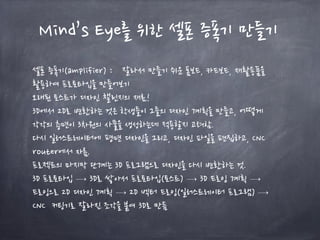 Mind's Eye를 위한 셀폰 증폭기 만들기
셀폰 증폭기(amplifier) : 잘라서 만들기 쉬운 폼보드, 카드보드, 재활용품을
활용하여 프로토타입을 만들어보기
오래된 토스트가 디자인 챌린지의 재료!
3D에서 2D로 변환하는 것은 학생들이 그들의 디자인 계획을 만들고, 어떻게
각각의 측면이 3차원의 사물을 생성하는데 적용할지 고려함.
다시 일러스트레이터에 평면 디자인을 그리고, 디자인 파일을 편집하고, CNC
router에서 자름.
프로젝트의 마지막 단계는 3D 프로그램으로 디자인을 다시 변환하는 것.
3D 프로토타입 → 3D로 쌓아서 프로토타입(토스트) → 3D 드로잉 계획 →
드로잉으로 2D 디자인 계획 → 2D 벡터 드로잉(일러스트레이터 프로그램) →
CNC 커팅기로 잘라진 조각을 붙여 3D로 만듦